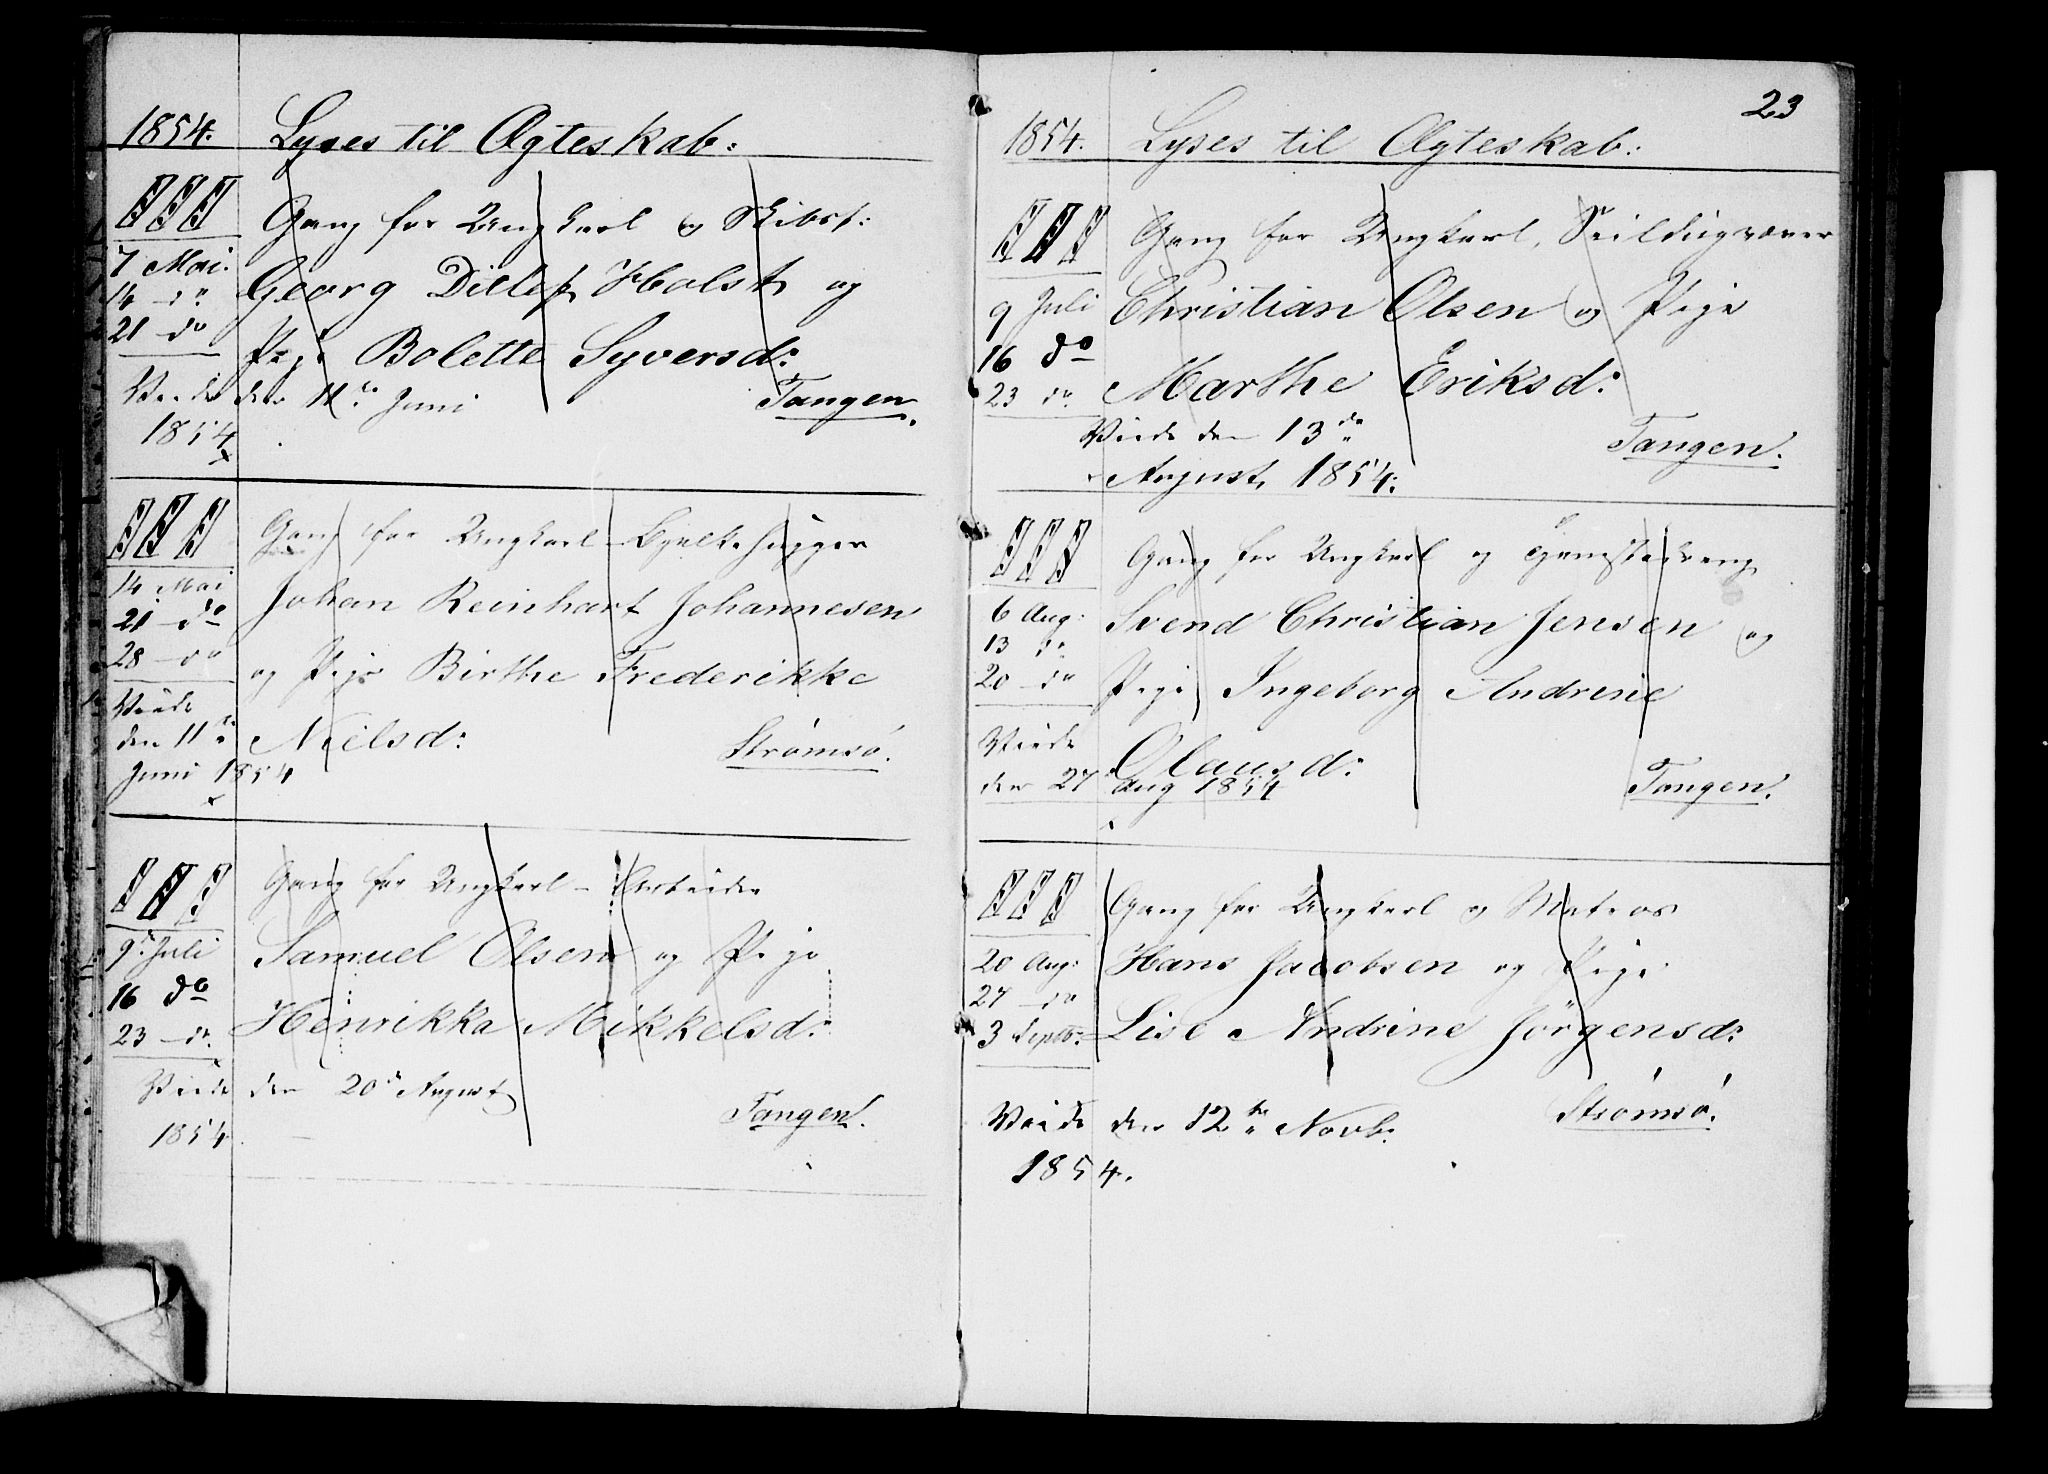 1854.
Lyses til Ægteskab:
III
Gang for Ungkarl og Skibst:
7 Mai.
Georg Ditlef Holst og
14 - do
21 - do
Pige Bolette Syversd:
Viede den 11te Juni
Tangen.
1854
III
Gang for Ungkarl - Bjelkehugger
14 Mai
Johan Reinhart Johannesen
21 - do
28 - do
og Pige Birthe Frederikke
Viede
Nielsd:
den 11te
Strømsø.
Juni 1854
III
Gang for Ungkarl - Arbeider
9. Juli
Samuel Olsen og Pige
16 do
23 - do
Henrikka Mikkelsd:
Viede den 20de August
Tangen.
1854.
23
1854.
Lyses til Ægteskab:
III
Gang for Ungkarl, Seildugvæver
9 Juli
Christian Olsen og Pige
16 do
23 do
Marthe Eriksd:
Viede den 13de
Tangen.
August 1854.
III
Gang for Ungkarl og Tjenestedreng
6 Aug:
Svend Christian Jensen og
13 do
20 - do
Pige Ingeborg Andrine
Viede
Olausd:
den 27 Aug 1854
Tangen.
III
Gang for Ungkarl og Matros
20 Aug:
Hans Jacobsen og Pige
27 - do
3 Septb:
Lise Andrine Jörgensd:
Strømsø.
Viede den 12te Novb:
1854.